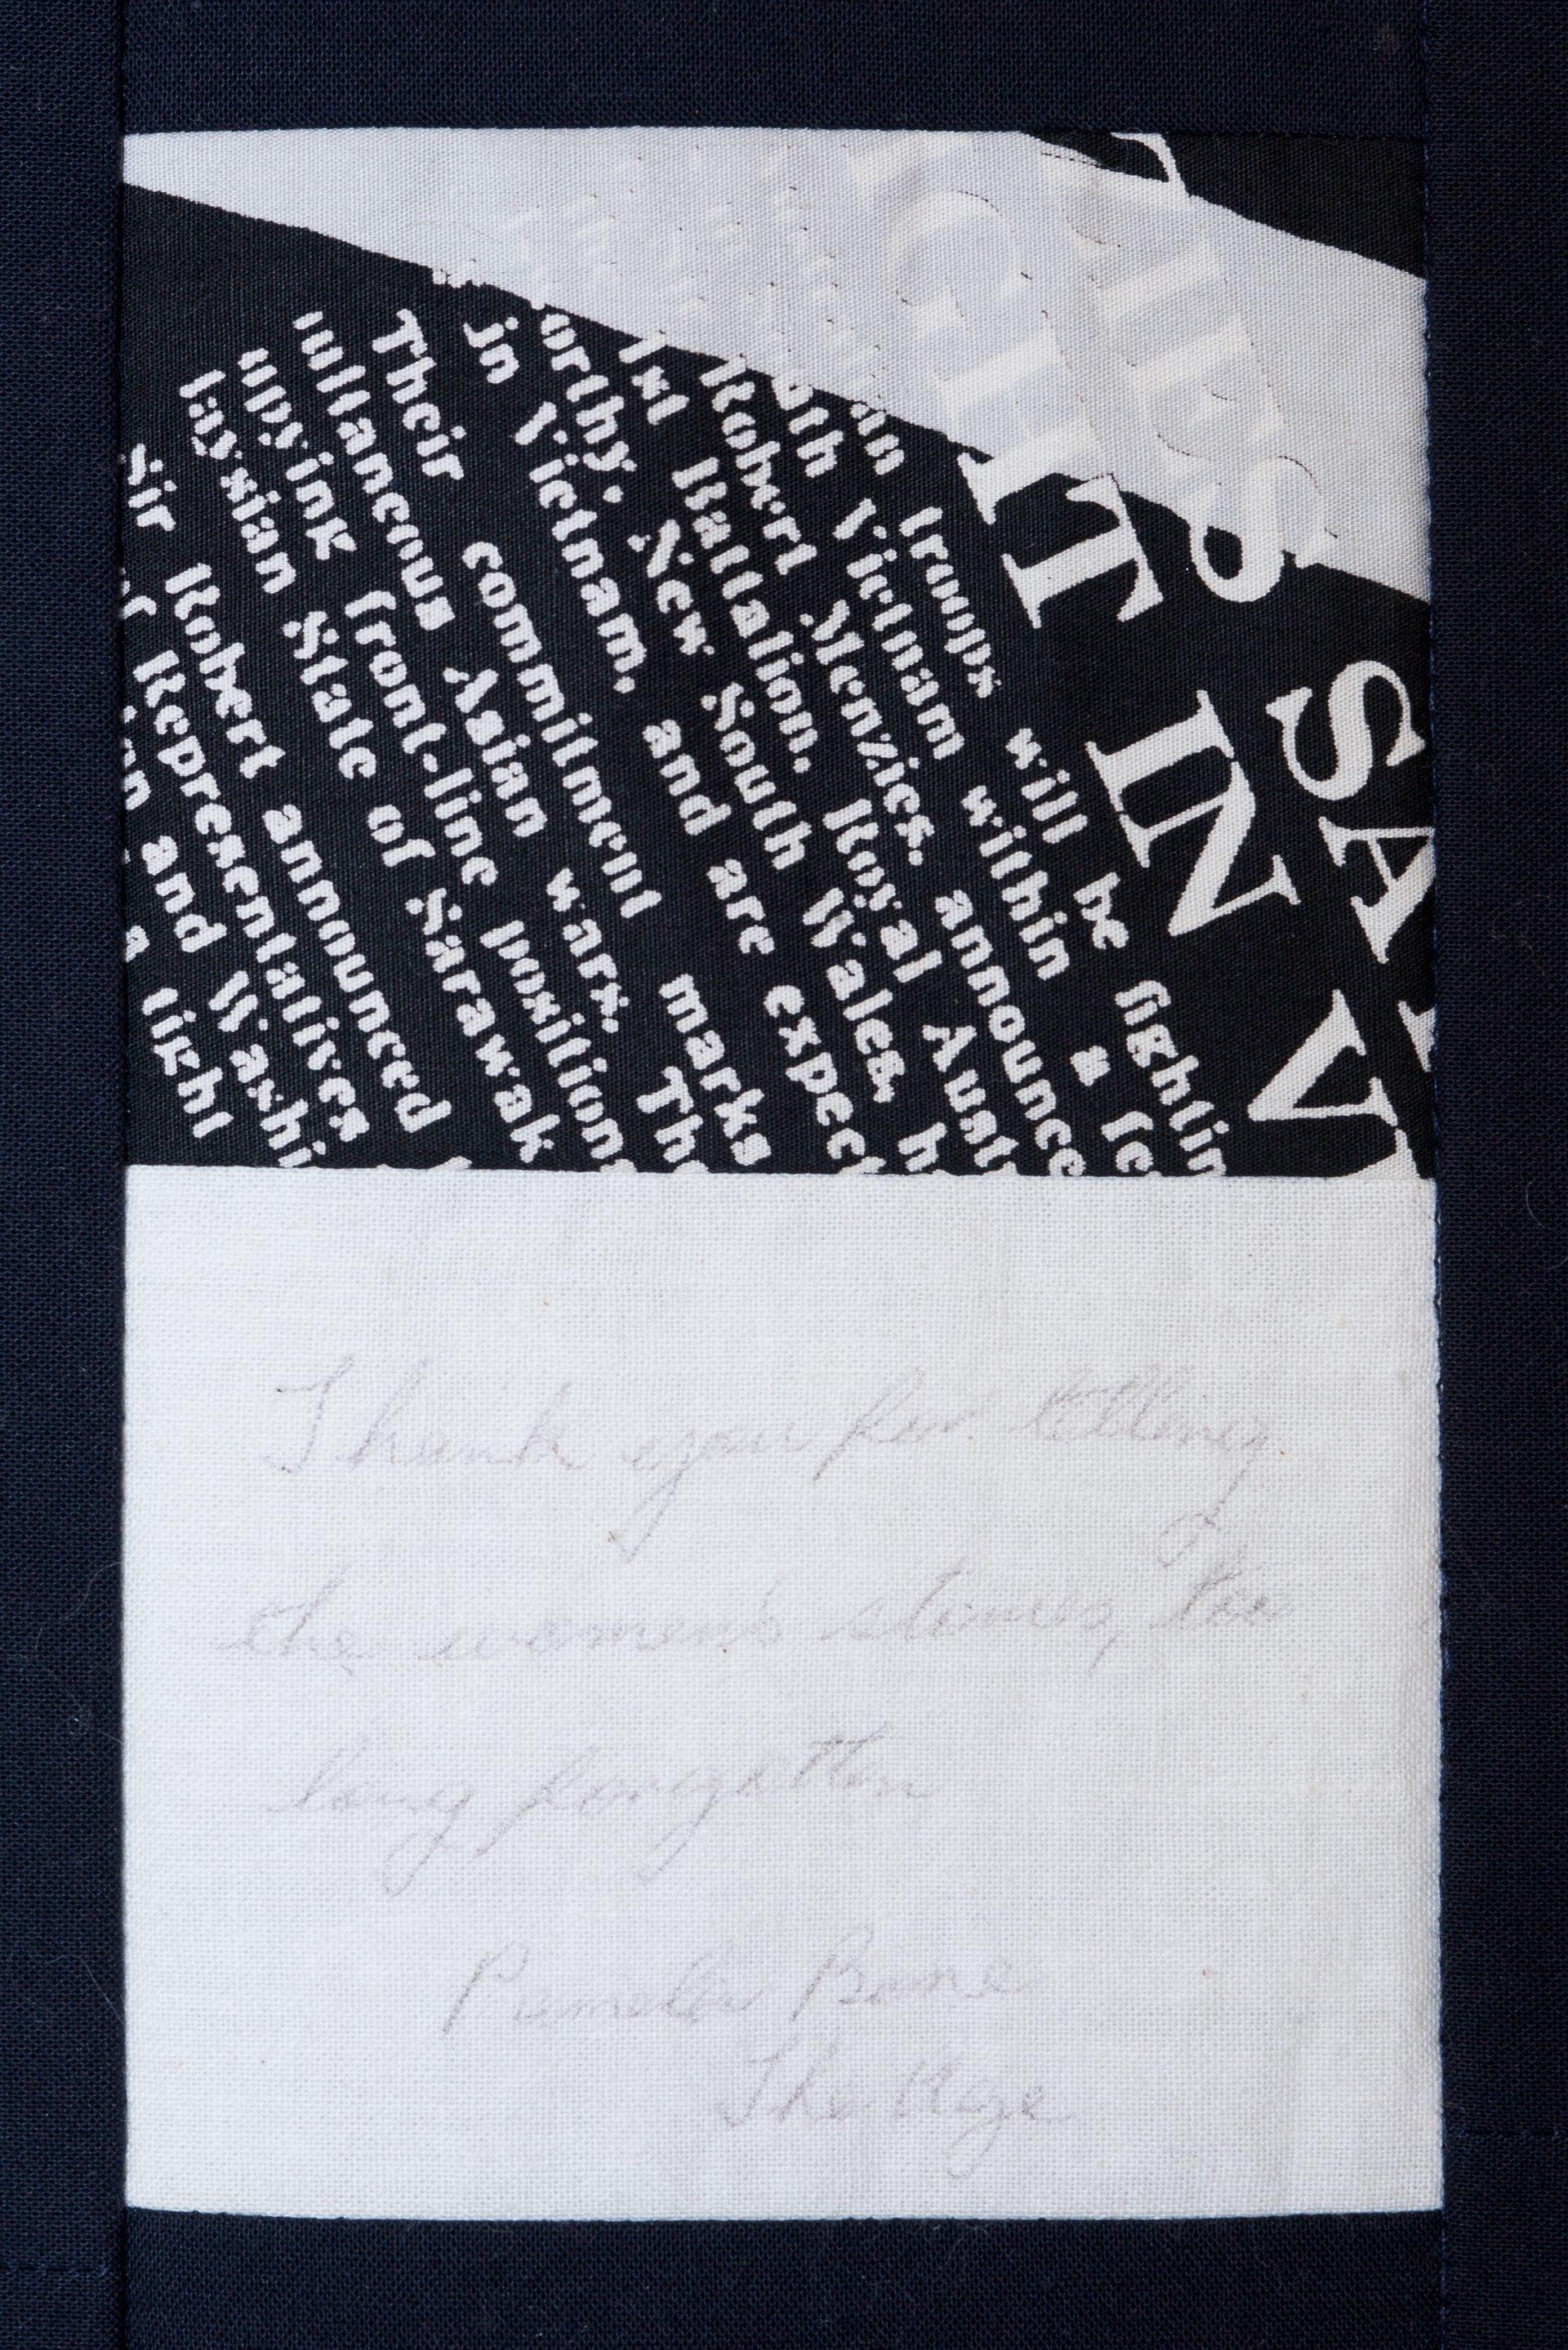 P SA
T IN V
an troops will be fightin
uth Vietnam within a fe
Robert Menzies, announce
1st Battalion, Royal Aust
orthy, New South Wales, h
in Vietnam, and are expec
Their commitment marks
ultaneous Asian wars. The
upying front-line position
laysian State of Sarawak
Sir Robert announced
r Representatives
n and Washi
a light
Thank you for telling
the women's stories, too
long forgotten
Pamela Bone
The Age